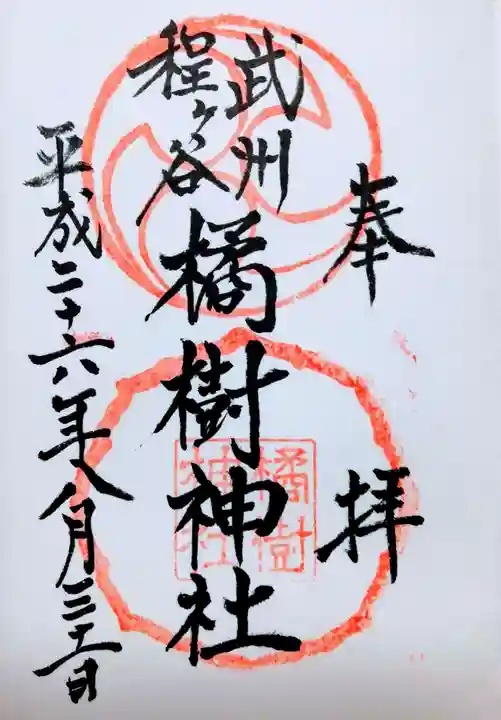 奉拝
武州
程ヶ谷
橘樹神社
橘樹
神社
平成二十六年八月三十一日